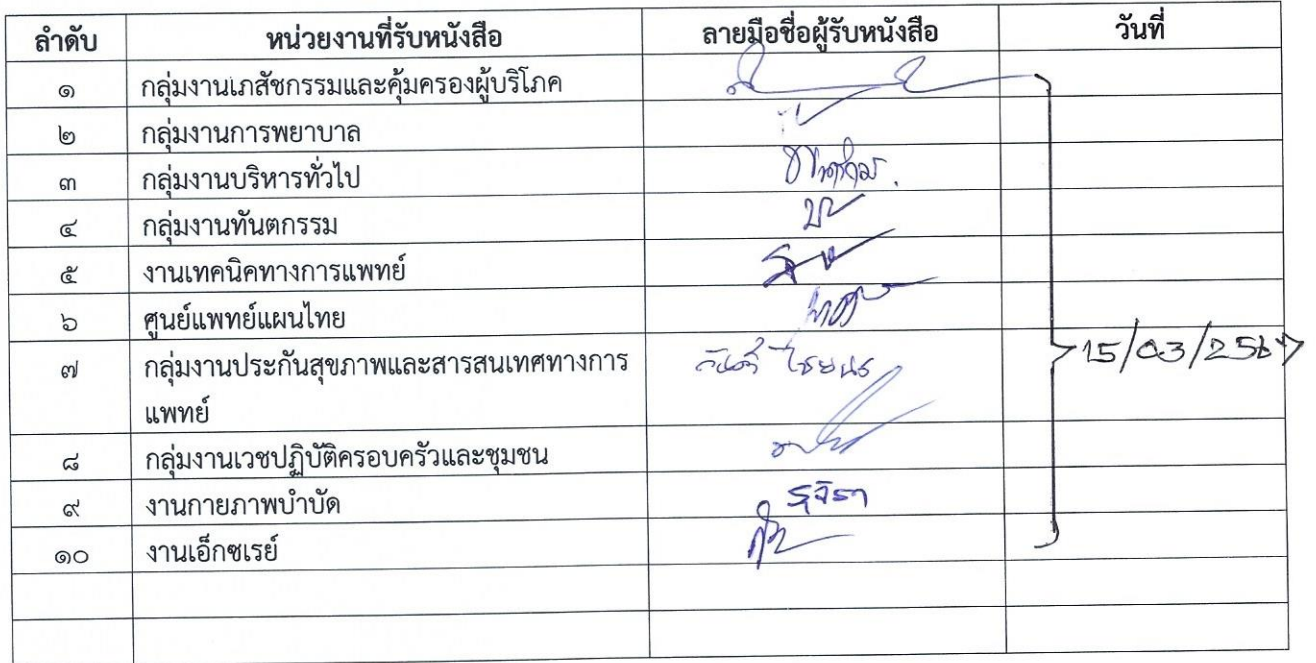 ลำดับ หน่วยงานที่รับหนังสือ ลายมือชื่อผู้รับหนังสือ วันที่
๑ กลุ่มงานเภสัชกรรมและคุ้มครองผู้บริโภค
๒ กลุ่มงานการพยาบาล
๓ กลุ่มงานบริหารทั่วไป
๔ กลุ่มงานทันตกรรม
๕ งานเทคนิคทางการแพทย์
๖ ศูนย์แพทย์แผนไทย
๗ กลุ่มงานประกันสุขภาพและสารสนเทศทางการ
แพทย์
15/03/2567
๘ กลุ่มงานเวชปฏิบัติครอบครัวและชุมชน
๙ งานกายภาพบำบัด รุจิรา
๑๐ งานเอ็กซเรย์